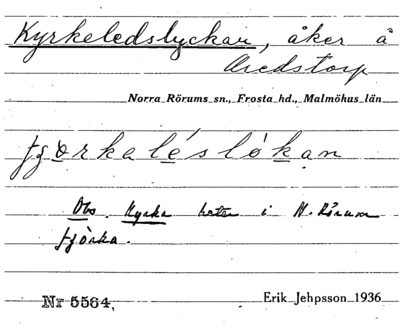 Kyrkeledslyckan, åker å
Aredstorp
Norra Rörums sn., Frosta hd., Malmöhus län
fjörkaléslökan
Obs. Kyrka heter i N. Rörum
fjörka.
Nr 5564,
Erik Jehpsson 1936